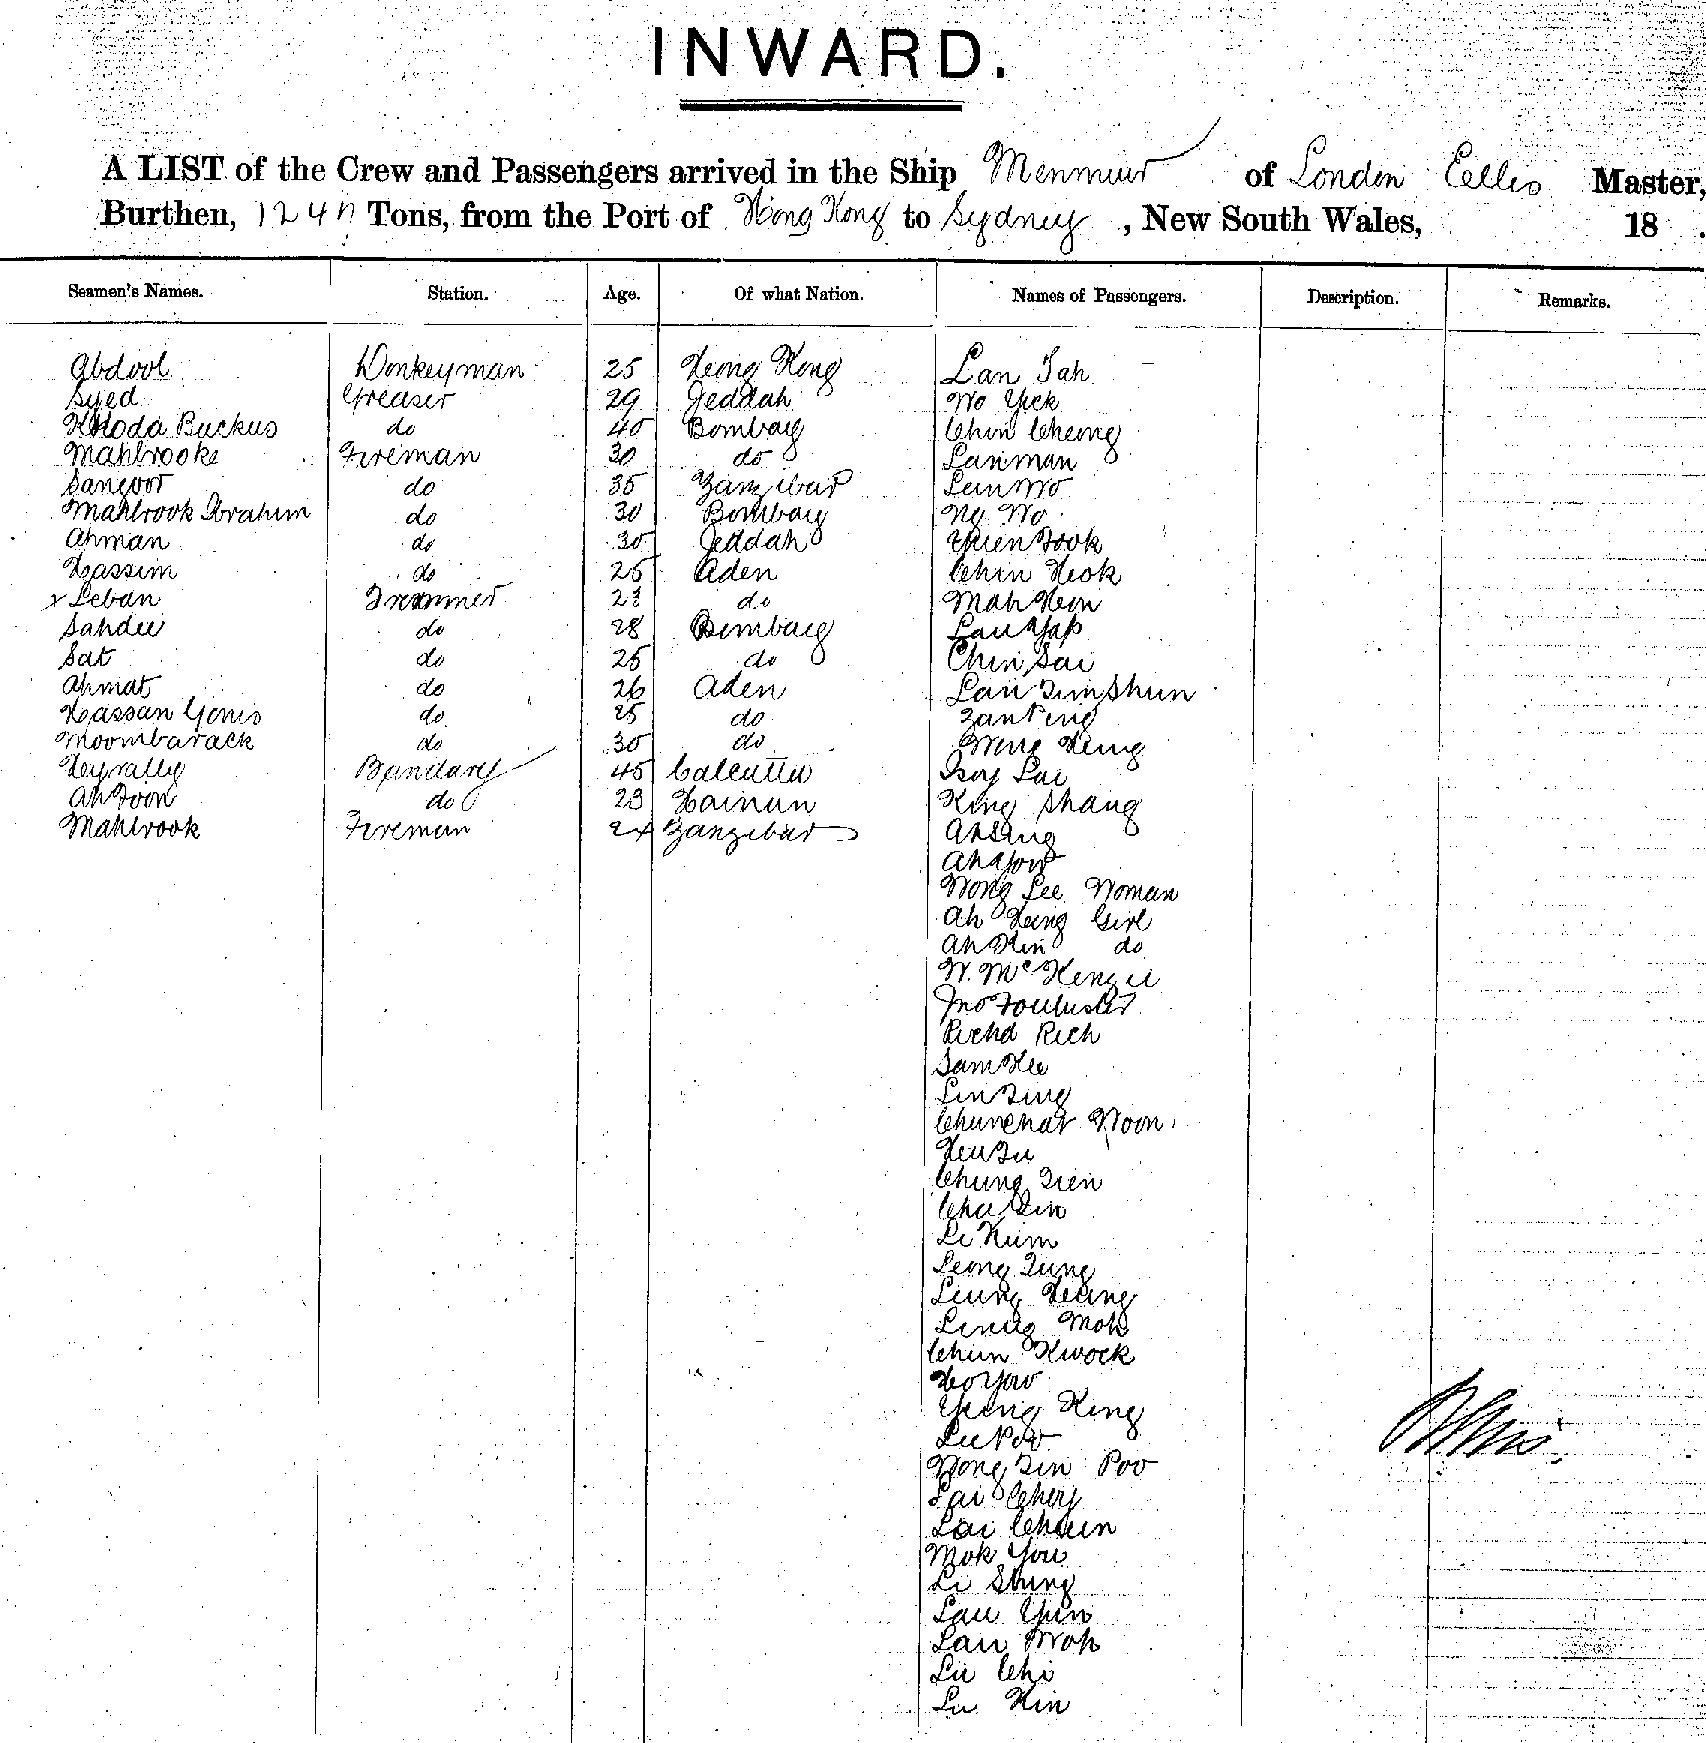 INWARD.
A LIST of the Crew and Passengers arrived in the Ship Menmuir of London Ellis Master,
Burthen, 1247 Tons, from the Port of Hong Kong to Sydney, New South Wales, 18 .
Seamen's Names. Station. Age. Of what Nation. Names of Passengers. Description. Remarks.
Abdool Donkeyman 25 Hong Kong Lan Tah
Syed Greaser 29 Jeddah Wo Yick
Khoda Buckus do 40 Bombay Chin Cheong
Mahbrooke Fireman 30 do Lanman
Sangoor do 35 Zanzibar Leun Wo
Mahbrook Ibrahim do 30 Bombay Ng Wo
Ahman do 30 Jeddah Yuen Fook
Hassim do 25 Aden Chin Heok
x Leban Trimmer 23 do Mah Heon
Sahdee do 28 Bombay Lau Yap
Sat do 25 do Chin Sai
Ahmat do 26 Aden Lau Tim Shun
Hassan Yonis do 25 do Zan Ping
Moombarack do 30 do Wing Hing
Heyrally Bandary 45 Calcutta Tsoy Lai
Ah Foon do 23 Hainan King Shang
Mahbrook Fireman 24 Zanzibar Ah Sing
Ah Yow
Wong Lee Woman
Ah Heing Girl
Ah Kin do
W. McKenzie
Jno
Richd Rich
Sam Hee
Lin Ting
Chunchat Woon
Heu Tu
Chung Tien
Chu Sin
Le Kum
Leong Tung
Leung Heung
Leung Mok
Chun Kwock
Ho Yow
Yeung King
Lee Pow
Wong Tin Poo
Lai Choy
Lai Chuen
Mok You
Li Shing
Lau Yun
Lau Wah
Lu Chi
Lu Kin